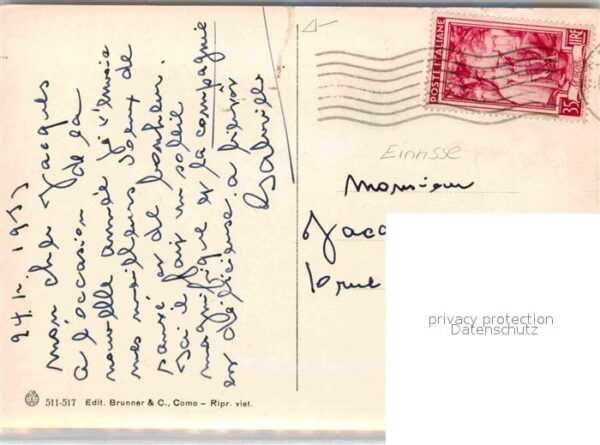 24.12.1953
mon cher Jacques
a l'occasion de la
nouvelle année je t'envoie
mes meilleurs voeux de
santé et de bonheur.
Ici il fait un soleil
magnifique et la compagnie
est délicieuse. a bientôt
POSTE ITALIANE
LIRE
35
EINRISSE
Monsieur
Jacq
10 rue
privacy protection
Datenschutz
511-517 Edit. Brunner & C., Como – Ripr. viet.